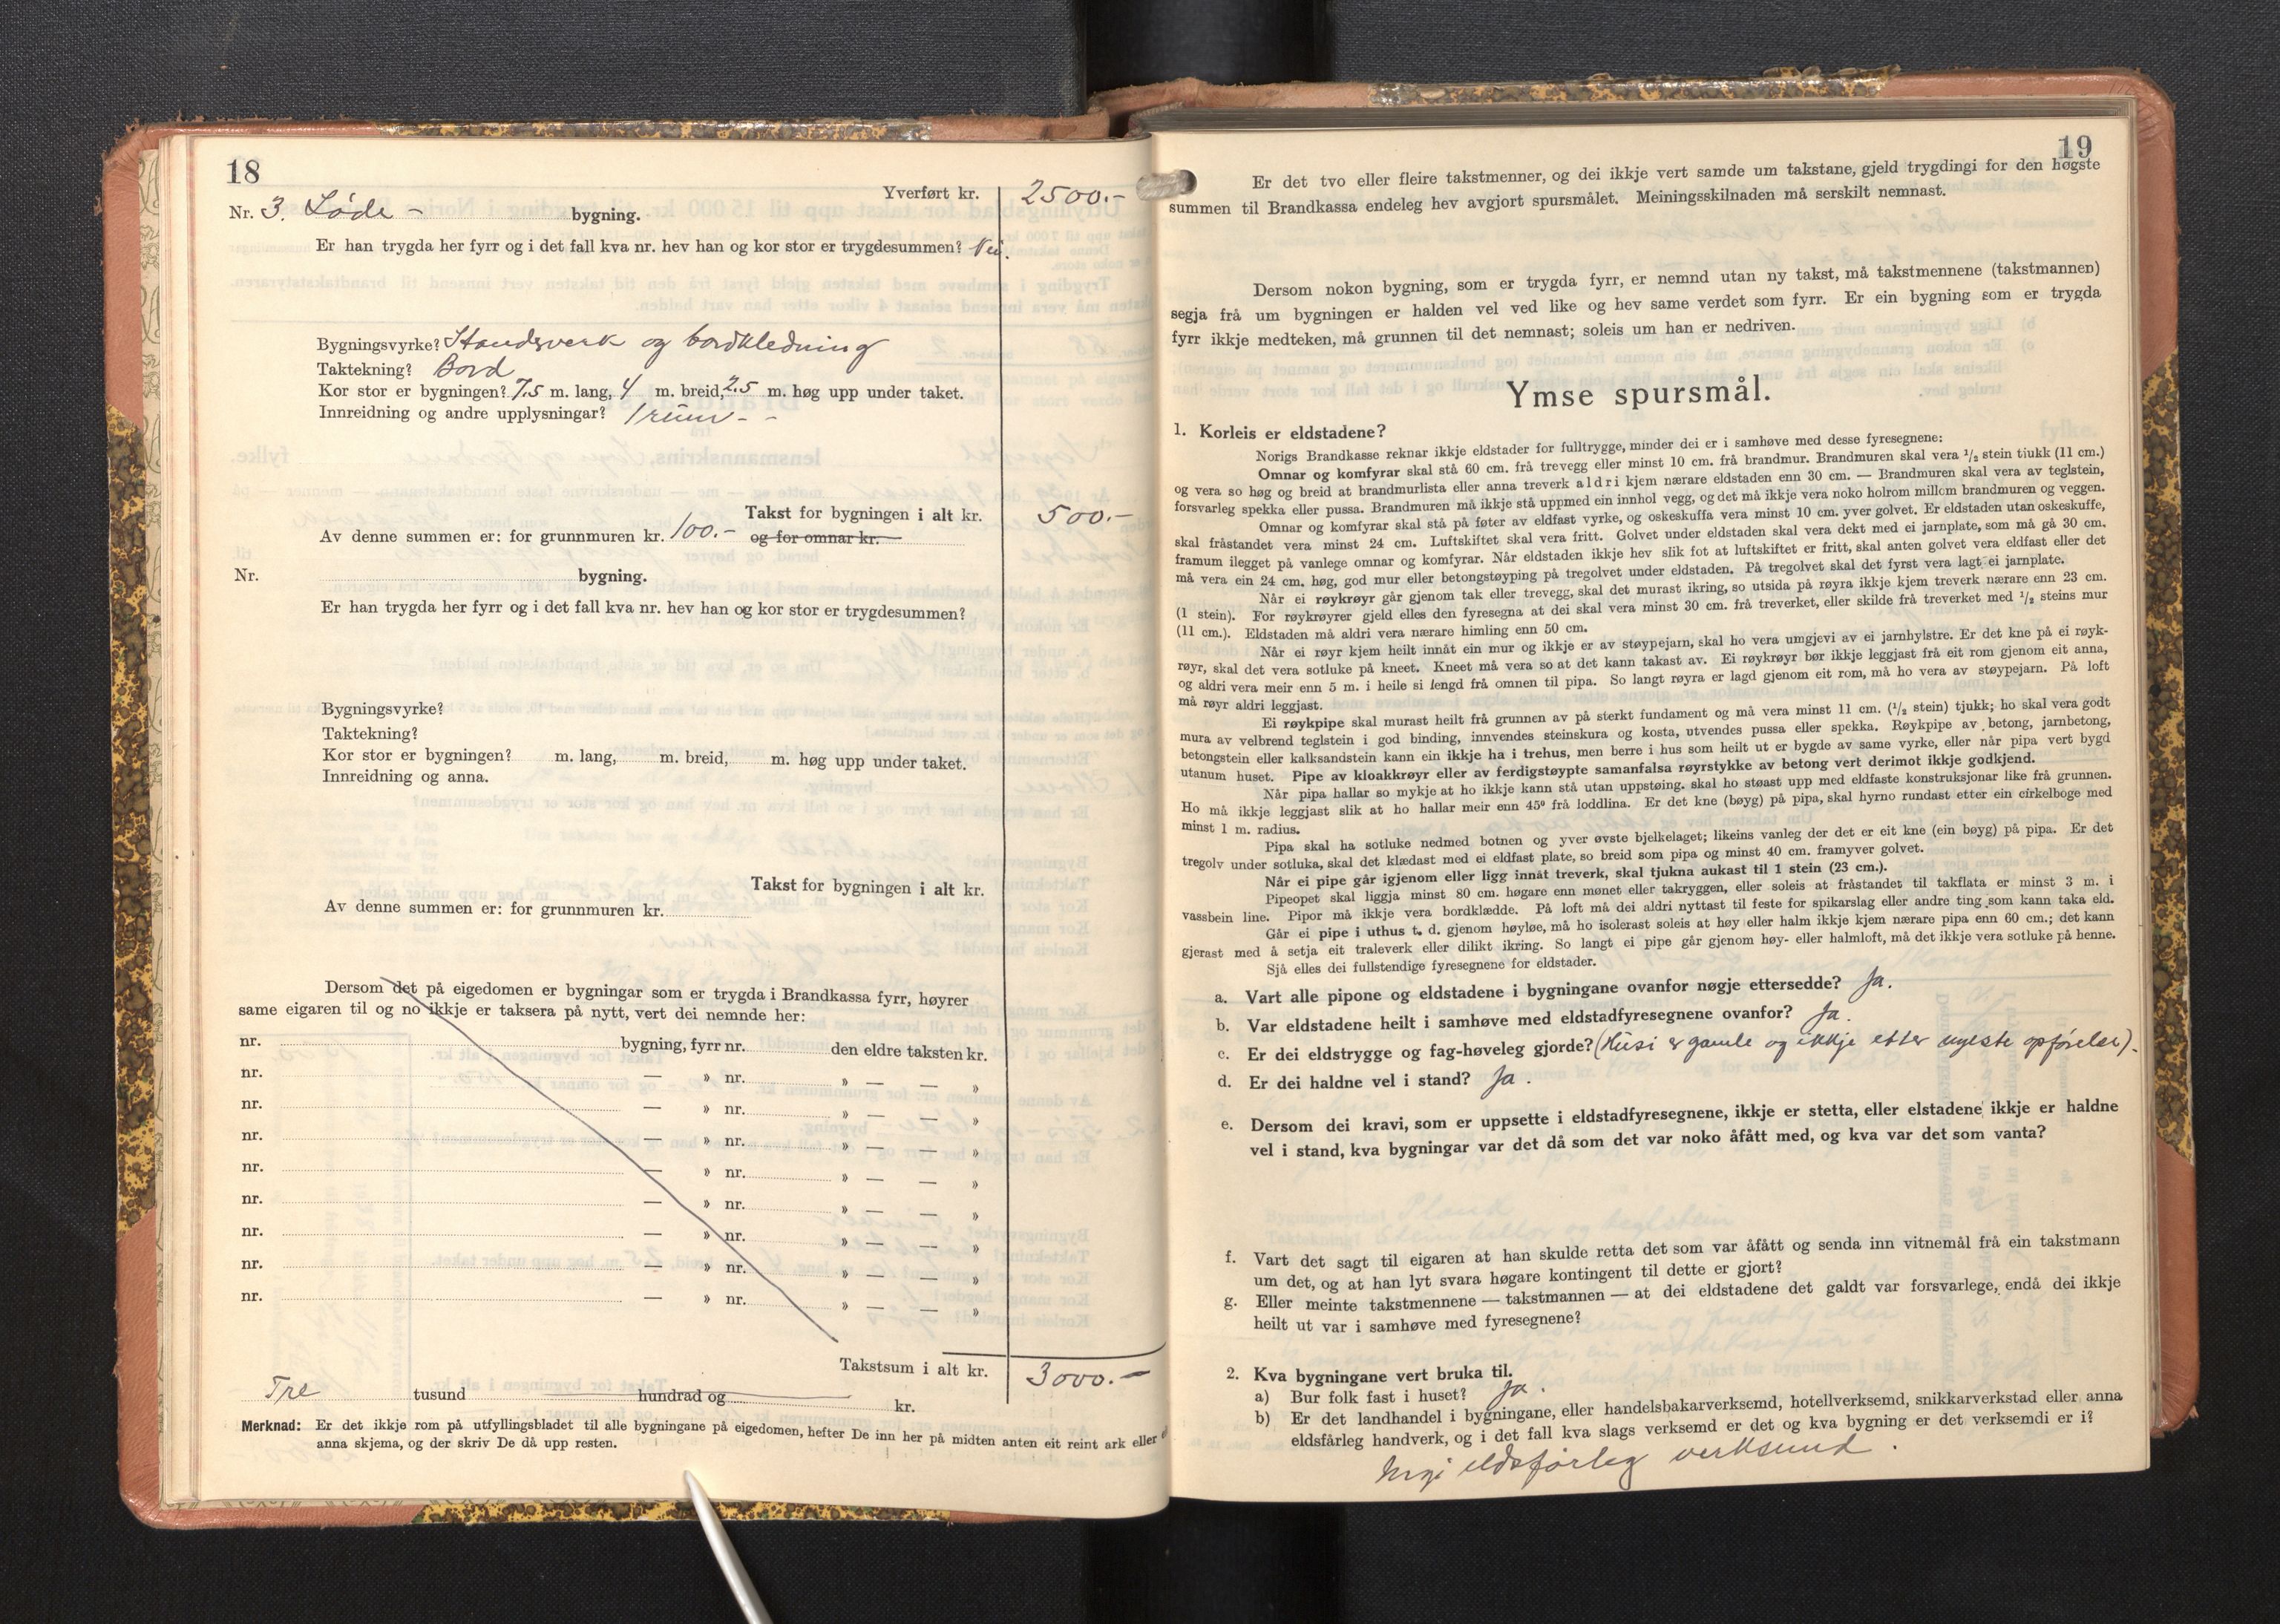 18
Yverført kr. 2500.-
Nr. 3. Löde - bygning.
Er han trygda her fyrr og i det fall kva nr. hev han og kor stor er trygdesummen? Nei.
Bygningsvyrke? Standsverk og bordkledning
Taktekning? Bord
Kor stor er bygningen? 7,5 m. lang, 4 m. breid, 2.5 m. høg upp under taket.
Innreidning og andre upplysningar? 1 rum - -
Takst for bygningen i alt kr. 500.-
Av denne summen er: for grunnmuren kr. 100.- og for omnar kr.
Nr. bygning.
Er han trygda her fyrr og i det fall kva nr. hev han og kor stor er trygdesummen?
Bygningsvyrke?
Taktekning?
Kor stor er bygningen? m. lang, m. breid, m. høg upp under taket.
Innreidning og anna.
Takst for bygningen i alt kr.
Av denne summen er: for grunnmuren kr.
Dersom det på eigedomen er bygningar som er trygda i Brandkassa fyrr, høyrer
same eigaren til og no ikkje er taksera på nytt, vert dei nemnde her:
nr. bygning, fyrr nr. den eldre taksten kr.
nr. — » nr. » — — »
nr. — » nr. » — — »
nr. — » nr. » — — »
nr. — » nr. » — — »
nr. — » nr. » — — »
nr. — » nr. » — — »
nr. — » nr. » — — »
nr. — » nr. » — — »
Takstsum i alt kr. 3000.-
Tre tusund hundrad og kr.
Merknad: Er det ikkje rom på utfyllingsbladet til alle bygningane på eigedomen, hefter De inn her på midten anten eit reint ark eller
anna skjema, og der skriv De då upp resten.
19
Er det tvo eller fleire takstmenner, og dei ikkje vert samde um takstane, gjeld trygdingi for den høgste
summen til Brandkassa endeleg hev avgjort spursmålet. Meiningsskilnaden må serskilt nemnast.
Dersom nokon bygning, som er trygda fyrr, er nemnd utan ny takst, må takstmennene (takstmannen)
segja frå um bygningen er halden vel ved like og hev same verdet som fyrr. Er ein bygning som er trygda
fyrr ikkje medteken, må grunnen til det nemnast; soleis um han er nedriven.
Ymse spursmål.
1. Korleis er eldstadene?
Norigs Brandkasse reknar ikkje eldstader for fulltrygge, minder dei er i samhøve med desse fyresegnene:
Omnar og komfyrar skal stå 60 cm. frå trevegg eller minst 10 cm. frå brandmur. Brandmuren skal vera 1/2 stein tjukk (11 cm.)
og vera so høg og breid at brandmurlista eller anna treverk aldri kjem nærare eldstaden enn 30 cm. — Brandmuren skal vera av teglstein,
forsvarleg spekka eller pussa. Brandmuren må ikkje stå uppmed ein innhol vegg, og det må ikkje vera noko holrom millom brandmuren og veggen.
Omnar og komfyrar skal stå på føter av eldfast vyrke, og oskeskuffa vera minst 10 cm. yver golvet. Er eldstaden utan oskeskuffe,
skal fråstandet vera minst 24 cm. Luftskiftet skal vera fritt. Golvet under eldstaden skal vera dekt med ei jarnplate, som må gå 30 cm.
framum ilegget på vanlege omnar og komfyrar. Når eldstaden ikkje hev slik fot at luftskiftet er fritt, skal anten golvet vera eldfast eller det
må vera ein 24 cm. høg, god mur eller betongstøyping på tregolvet under eldstaden. På tregolvet skal det fyrst vera lagt ei jarnplate.
Når ei røykrøyr går gjenom tak eller trevegg, skal det murast ikring, so utsida på røyra ikkje kjem treverk nærare enn 23 cm.
(1 stein). For røykrøyrer gjeld elles den fyresegna at dei skal vera minst 30 cm. frå treverket, eller skilde frå treverket med 1/2 steins mur
(11 cm.). Eldstaden må aldri vera nærare himling enn 50 cm.
Når ei røyr kjem heilt innåt ein mur og ikkje er av støypejarn, skal ho vera umgjevi av ei jarnhylstre. Er det kne på ei røyk-
røyr, skal det vera sotluke på kneet. Kneet må vera so at det kann takast av. Ei røykrøyr bør ikkje leggjast frå eit rom gjenom eit anna,
og aldri vera meir enn 5 m. i heile si lengd frå omnen til pipa. So langt røyra er lagd gjenom eit rom, må ho vera av støypejarn. På loft
må røyr aldri leggjast.
Ei røykpipe skal murast heilt frå grunnen av på sterkt fundament og må vera minst 11 cm. (1/2 stein) tjukk; ho skal vera godt
mura av velbrend teglstein i god binding, innvendes steinskura og kosta, utvendes pussa eller spekka. Røykpipe av betong, jarnbetong,
betongstein eller kalksandstein kann ein ikkje ha i trehus, men berre i hus som heilt ut er bygde av same vyrke, eller når pipa vert bygd
utanum huset. Pipe av kloakkrøyr eller av ferdigstøypte samanfalsa røyrstykke av betong vert derimot ikkje godkjend.
Når pipa hallar so mykje at ho ikkje kann stå utan uppstøing, skal ho støast upp med eldfaste konstruksjonar like frå grunnen.
Ho må ikkje leggjast slik at ho hallar meir enn 45° frå loddlina. Er det kne (bøyg) på pipa, skal hyrno rundast etter ein cirkelboge med
minst 1 m. radius.
Pipa skal ha sotluke nedmed botnen og yver øvste bjelkelaget; likeins vanleg der det er eit kne (ein bøyg) på pipa. Er det
tregolv under sotluka, skal det klædast med ei eldfast plate, so breid som pipa og minst 40 cm. framyver golvet.
Når ei pipe går igjenom eller ligg innåt treverk, skal tjukna aukast til 1 stein (23 cm.).
Pipeopet skal liggja minst 80 cm. høgare enn mønet eller takryggen, eller soleis at fråstandet til takflata er minst 3 m. i
vassbein line. Pipor må ikkje vera bordklædde. På loft må dei aldri nyttast til feste for spikarslag eller andre ting som kann taka eld.
Går ei pipe i uthus t. d. gjenom høyløe, må ho isolerast soleis at høy eller halm ikkje kjem nærare pipa enn 60 cm.; det kann
gjerast med å setja eit traleverk eller dilikt ikring. So langt ei pipe går gjenom høy- eller halmloft, må det ikkje vera sotluke på henne.
Sjå elles dei fullstendige fyresegnene for eldstader.
a. Vart alle pipone og eldstadene i bygningane ovanfor nøgje ettersedde? Ja.
b. Var eldstadene heilt i samhøve med eldstadfyresegnene ovanfor? Ja.
c. Er dei eldstrygge og fag-høveleg gjorde? (Husi er gamle og ikkje etter nyeste opføreler).
d. Er dei haldne vel i stand? Ja.
e. Dersom dei kravi, som er uppsette i eldstadfyresegnene, ikkje er stetta, eller elstadene ikkje er haldne
vel i stand, kva bygningar var det då som det var noko åfått med, og kva var det som vanta?
f. Vart det sagt til eigaren at han skulde retta det som var åfått og senda inn vitnemål frå ein takstmann
um det, og at han lyt svara høgare kontingent til dette er gjort?
g. Eller meinte takstmennene — takstmannen — at dei eldstadene det galdt var forsvarlege, endå dei ikkje
heilt ut var i samhøve med fyresegnene?
2. Kva bygningane vert bruka til.
a) Bur folk fast i huset? Ja.
b) Er det landhandel i bygningane, eller handelsbakarverksemd, hotellverksemd, snikkarverkstad eller anna
eldsfårleg handverk, og i det fall kva slags verksemd er det og kva bygning er det verksemdi er i?
Ingi eldsfårleg verksemd.